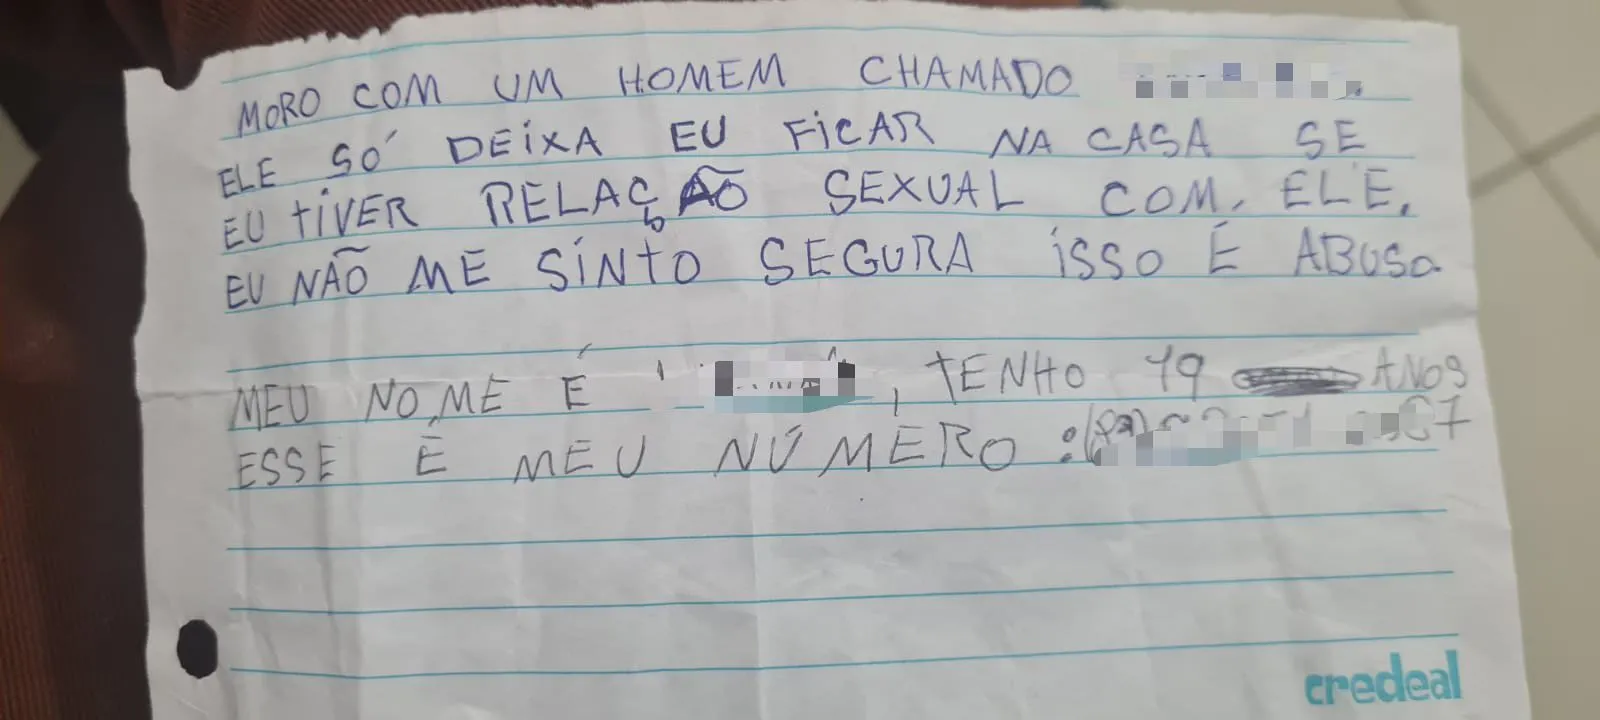 MORO COM UM HOMEM CHAMADO
ELE SÓ DEIXA EU FICAR NA CASA SE
EU TIVER RELAÇÃO SEXUAL COM. ELE.
EU NÃO ME SINTO SEGURA ISSO É ABUSO
MEU NOME É , TENHO 19 ANOS
ESSE É MEU NÚMERO :
credeal